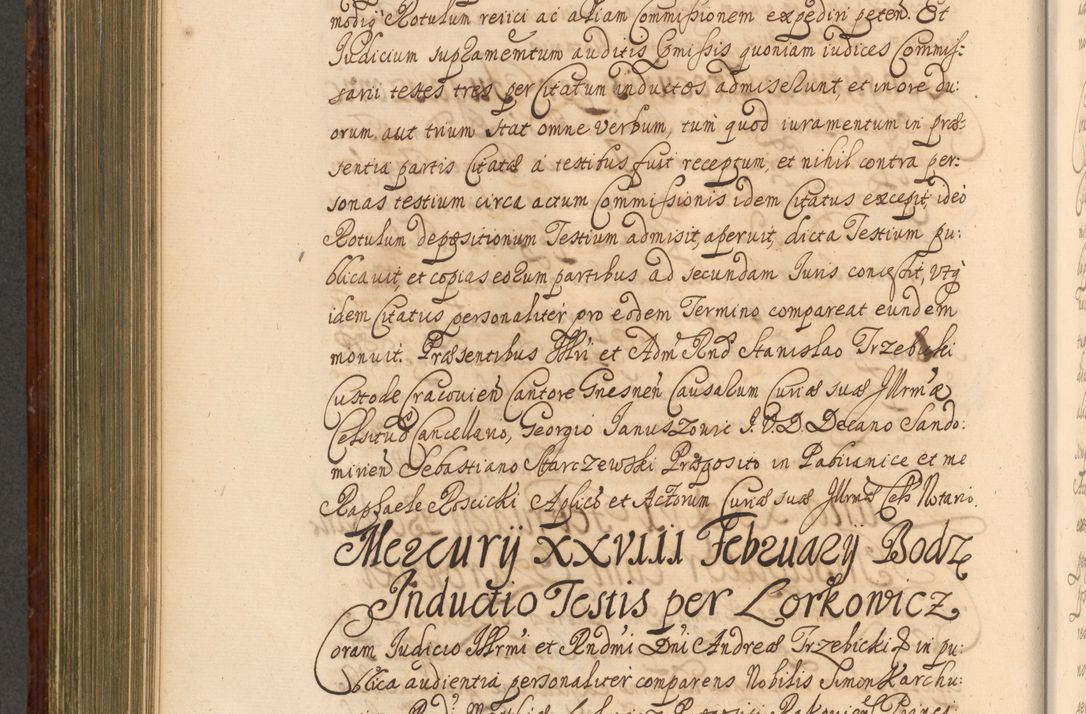 modiq Rotulum reiici ac aliam Commissionem expediri peteñ. Et
Judicium suplamentum auditis Commissis quoniam iudices Commis:
sarii testes tres per Citatum inductos admiserunt, et in ore du:
orum aut trium stat omne verbum, tum quod iuramentum in præ:
sentia partis Citatæ a testibus fuit receptum, et nihil contra per:
sonas testium circa actum Commissionis idem Citatus excepit, ideo
Rotulum depositionum Testium admisit, aperuit, dicta Testium pu:
blicavit, et copias eorum partibus ad secundam Iuris concessit, utq
idem Citatus personaliter pro eodem Termino compareat eundem
monuit. Præsentibus Illri et Adm Rnd Stanislao Trzebicki
Custode Cracovieñ Cantore Gnesneñ Causarum Curiæ suæ Illrmæ
Celsitud Cancellario, Georgio Januszowic J. V. D. Decano Sando:
mirieñ Sebastiano Starczewski Præposito in Pabianice et me
Raphaele Roscicki Aplico et Actorum Curiæ suæ Illrmæ Cels Notario.
Mercurij XXVIII Februarij Bodz
Inductio Testis per Lorkowicz
Coram Judicio Illrmi et Rndmi Dni Andreæ Trzebicki & in pu:
blica audientia personaliter comparens Nobilis Simon Karchu: